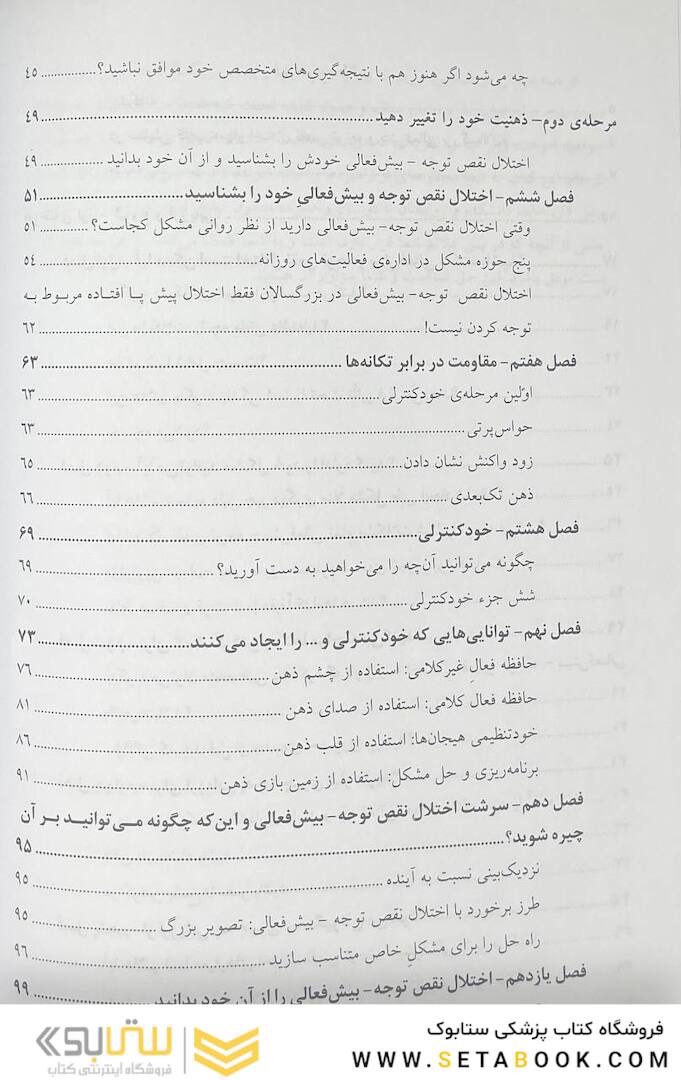 چه می‌شود اگر هنوز هم با نتیجه‌گیری‌های متخصص خود موافق نباشید؟............... ۴۵
مرحله‌ی دوم- ذهنیت خود را تغییر دهید............................................................ ۴۹
اختلال نقص توجه - بیش‌فعالی خودش را بشناسید و از آن خود بدانید ........ ۴۹
فصل ششم- اختلال نقص توجه و بیش‌فعالیِ خود را بشناسید.......................... ۵۱
وقتی اختلال نقص توجه- بیش‌فعالی دارید از نظر روانی مشکل کجاست؟............. ۵۱
پنج حوزه مشکل در اداره‌ی فعالیت‌های روزانه ................................................ ۵۴
اختلال نقص توجه- بیش‌فعالی در بزرگسالان فقط اختلال پیش پا افتاده مربوط به
توجه کردن نیست! .................................................................................. ۶۲
فصل هفتم- مقاومت در برابر تکانه‌ها ............................................................ ۶۳
اوّلین مرحله‌ی خودکنترلی........................................................................ ۶۳
حواس‌پرتی............................................................................................ ۶۳
زود واکنش نشان دادن............................................................................. ۶۵
ذهن تک‌بعدی ....................................................................................... ۶۶
فصل هشتم- خودکنترلی............................................................................. ۶۹
چگونه می‌توانید آن‌چه را می‌خواهید به دست آورید؟...................................... ۶۹
شش جزء خودکنترلی .............................................................................. ۷۰
فصل نهم- توانایی‌هایی که خودکنترلی و ... را ایجاد می‌کنند............................ ۷۳
حافظه فعالِ غیرکلامی: استفاده از چشم ذهن ................................................ ۷۶
حافظه فعال کلامی: استفاده از صدای ذهن ................................................... ۸۱
خودتنظیمی هیجان‌ها: استفاده از قلب ذهن ................................................... ۸۶
برنامه‌ریزی و حل مشکل: استفاده از زمین بازی ذهن ..................................... ۹۱
فصل دهم- سرشت اختلال نقص توجه- بیش‌فعالی و این‌که چگونه می‌توانید بر آن
چیره شوید؟............................................................................................ ۹۵
نزدیک‌بینی نسبت به آینده ........................................................................ ۹۵
طرز برخورد با اختلال نقص توجه - بیش‌فعالی: تصویر بزرگ ........................... ۹۵
راه حل را برای مشکلِ خاص متناسب سازید ................................................ ۹۶
فصل یازدهم- اختلال نقص توجه- بیش‌فعالی را از آن خود بدانید ..................... ۹۹
فروشگاه کتاب پزشکی ستابوک
WWW.SETABOOK.COM
ستابوک
فروشگاه اینترنتی کتاب